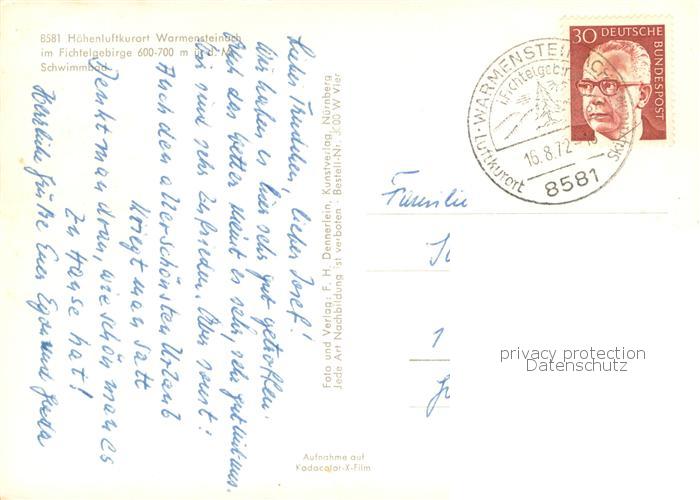 8581 Höhenluftkurort Warmensteinach
im Fichtelgebirge 600-700 m ü. d. M.
Schwimmbad
Liebes Trudchen, lieber Josef!
Wir haben es hier sehr gut getroffen.
Auch das Wetter meint es sehr, sehr gut mit uns.
Wir sind sehr zufrieden. Aber sonst:
Auch den allerschönsten Urlaub
kriegt man satt
Denkt man dran, wie schön man es
zu Hause hat!
Herzliche Grüße Euer Egon und Gerda
Foto und Verlag: F. H. Dennerlein, Kunstverlag, Nürnberg
Jede Art Nachbildung ist verboten · Bestell-Nr. W Vier
Aufnahme auf
Kodacolor-X-Film
30 DEUTSCHE
BUNDESPOST
WARMENSTEIN
i. Fichtelgebirge
16.8.72
8581
Luftkurort
Familie
privacy protection
Datenschutz